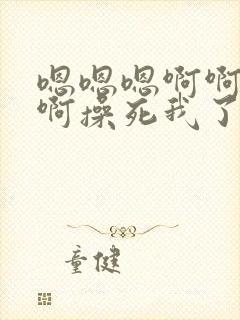 嗯嗯嗯啊啊
啊操死我了
童健